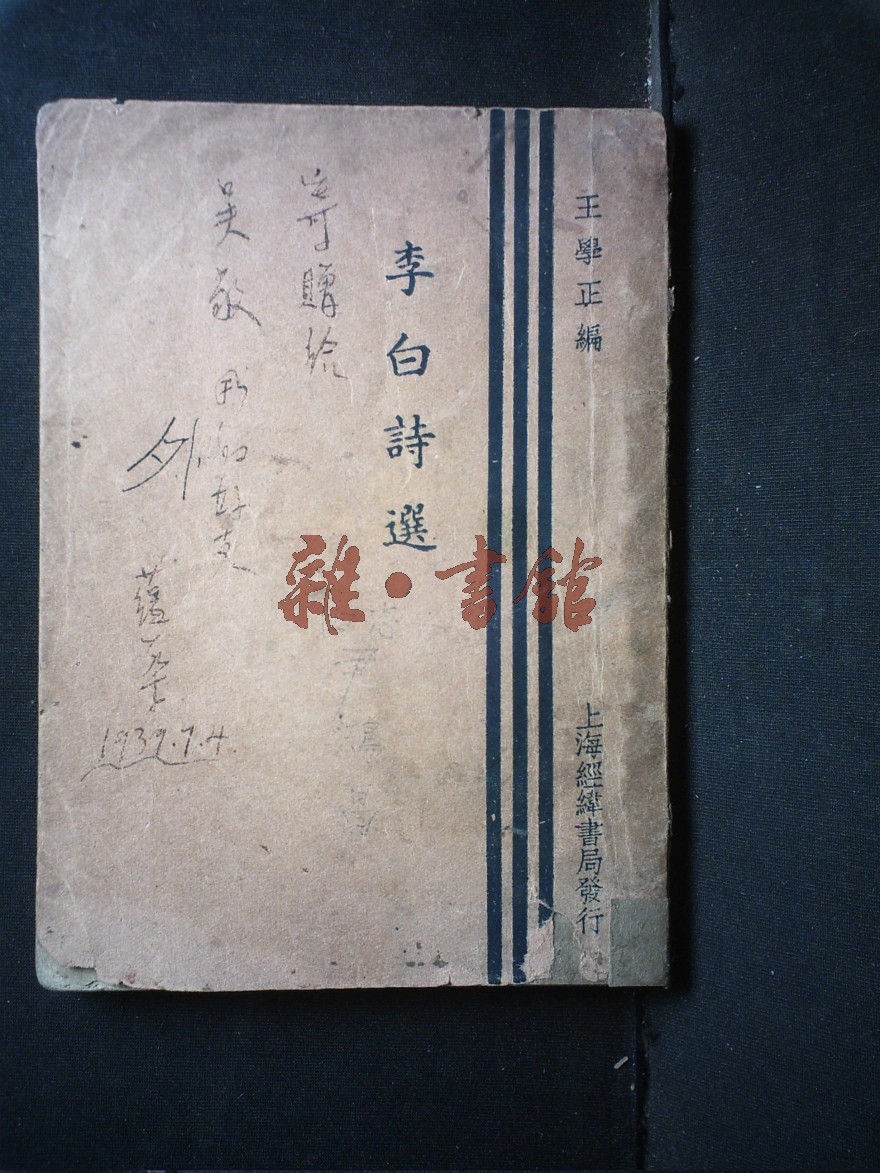 王學正編
上海經緯書局發行
李白詩選
寄贈給
吴敏 我的好友
外
蘊
1939.7.4.
雜·書館